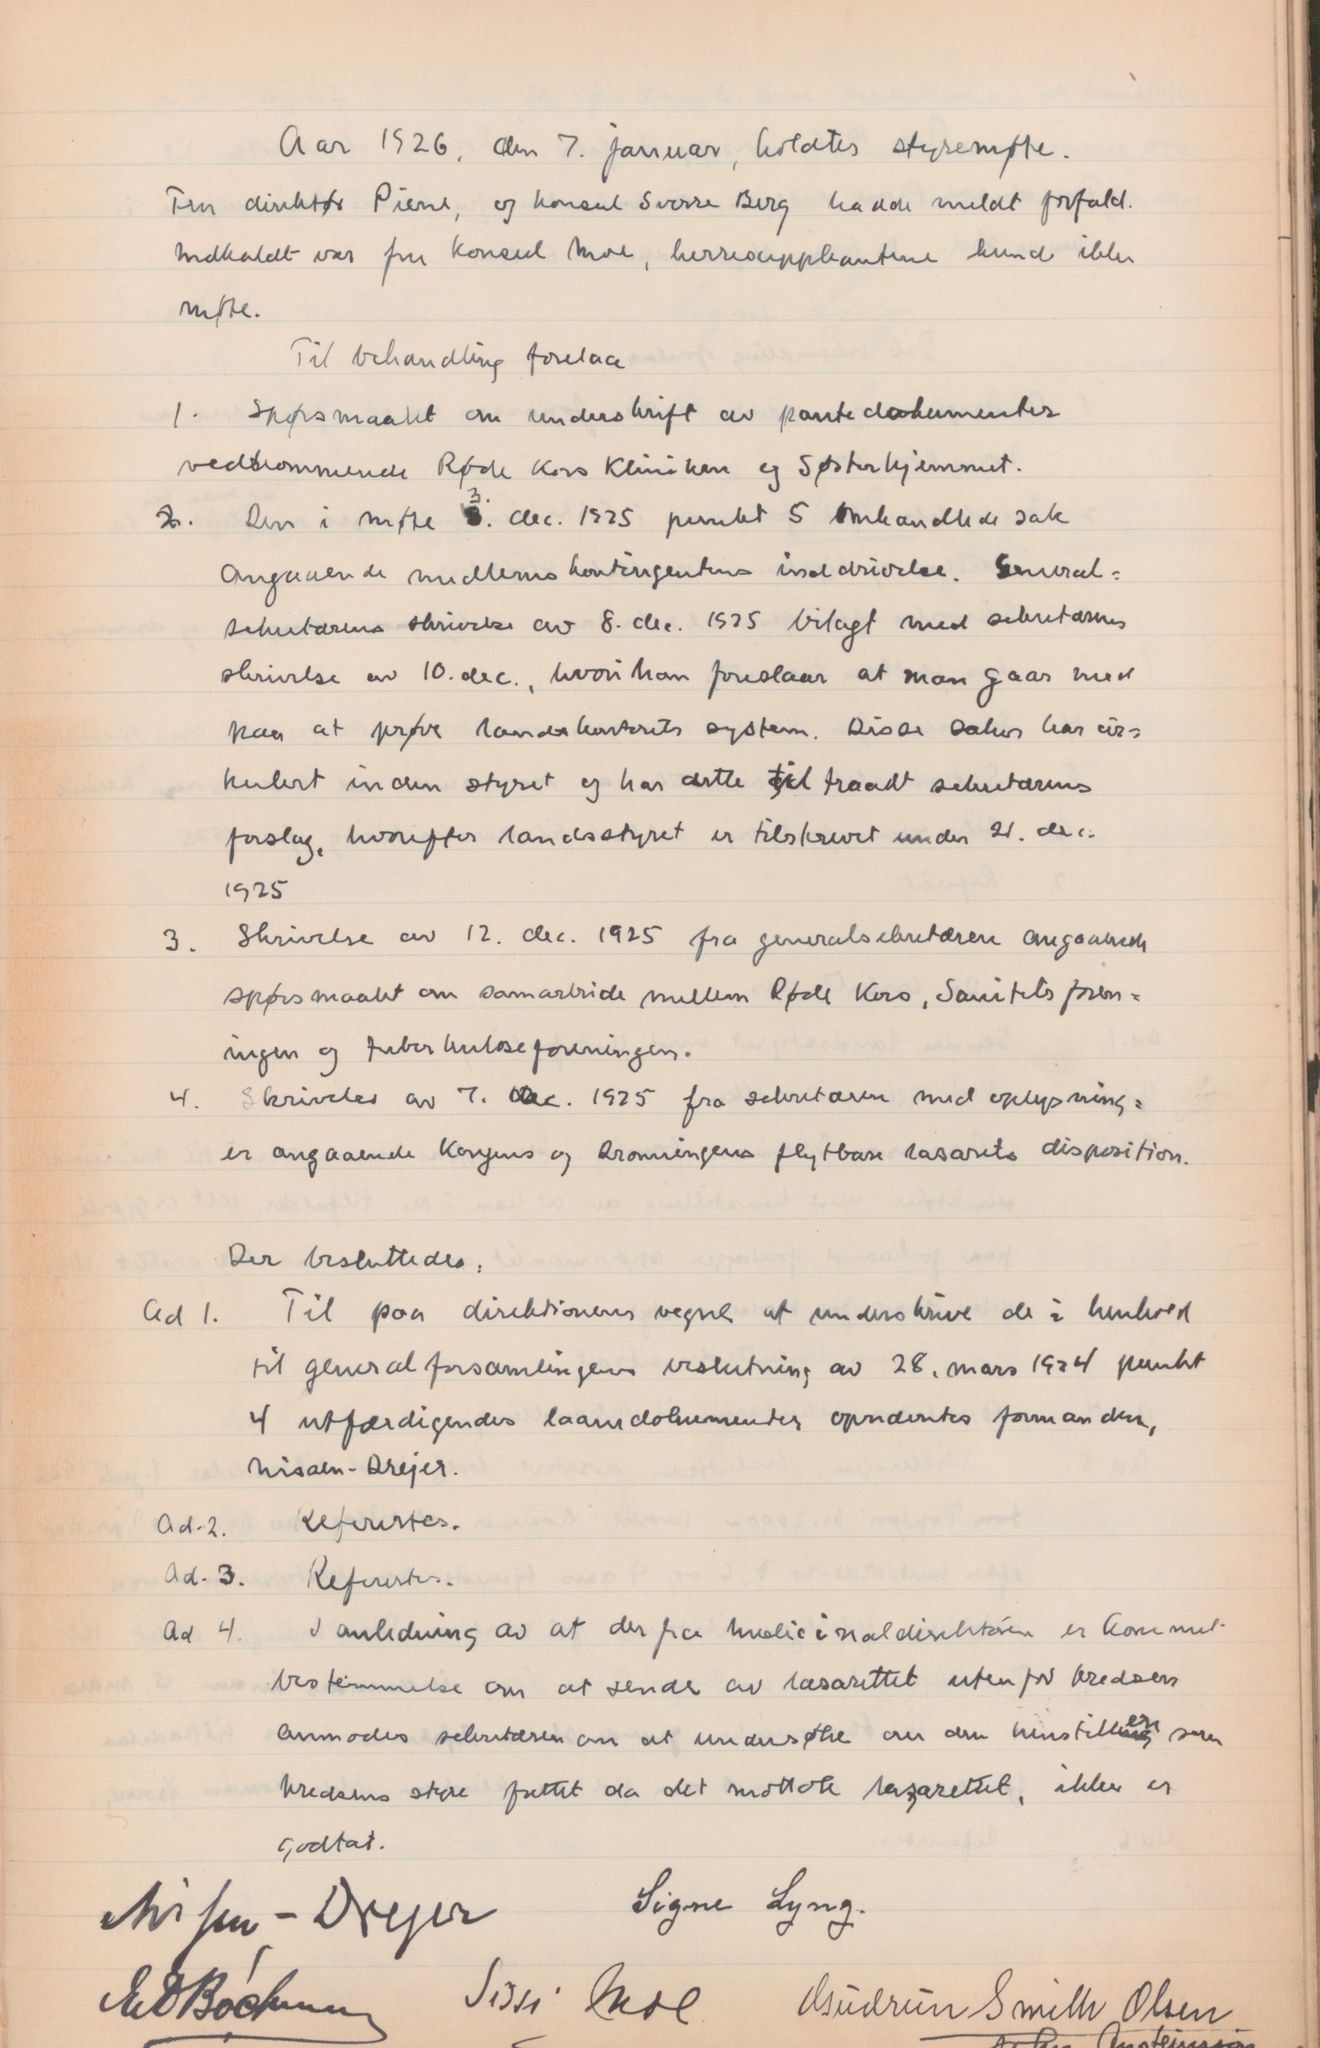 Aar 1926, den 7. januar, holdtes styremøte.
Fru direktør Piene, og konsul Sverre Berg hadde meldt forfald.
Indkaldt var fru konsul Moe, herresuppleantene kunde ikke
møte.
Til behandling forelaa
1. Spørsmaalet om underskrift av pantedokumenter
vedkommende Røde Kors Kliniken og Søsterhjemmet.
2. Den i møte 3. dec. 1925 punkt 5 omhandlede sak
angaaende medlemskontingentens inddrivelse. General-
sekretærens skrivelse av 8. dec. 1925 bilagt med sekretærens
skrivelse av 10. dec., hvori han foreslaar at man gaar med
paa at prøve landskontorets system. Disse saker har cir-
kulert inden styret og har dette tiltraadt sekretærens
forslag, hvorefter landsstyret er tilskrevet under 21. dec.
1925
3. Skrivelse av 12. dec. 1925 fra generalsekretæren angaaende
spørsmaalet om samarbeide mellem Røde Kors, Sanitetsforen-
ingen og tuberkuloseforeningen.
4. Skrivelse av 7. dec. 1925 fra sekretæren med oplysning-
er angaaende Kongens og Dronningens flytbare lasarets disposition.
Der besluttedes,
Ad 1. Til paa direktionens vegne at underskrive de i henhold
til generalforsamlingens beslutning av 28. mars 1924 punkt
4 utfærdigendes laanedokumenter opnevntes formanden,
Nissen-Drejer.
Ad-2. Refertes.
Ad-3. Refertes.
Ad 4. I anledning av at der fra medicinaldirektøren er kommet
bestemmelse om at sende av lasarettet utenfor kredsen
anmodes sekretæren om at undersøke om den henstilling som
kredsens styre fattet da det mottok lazarettet, ikke er
godtat.
Nissen-Drejer Signe Lyng.
Sissi Moe Gudrun Smith Olsen